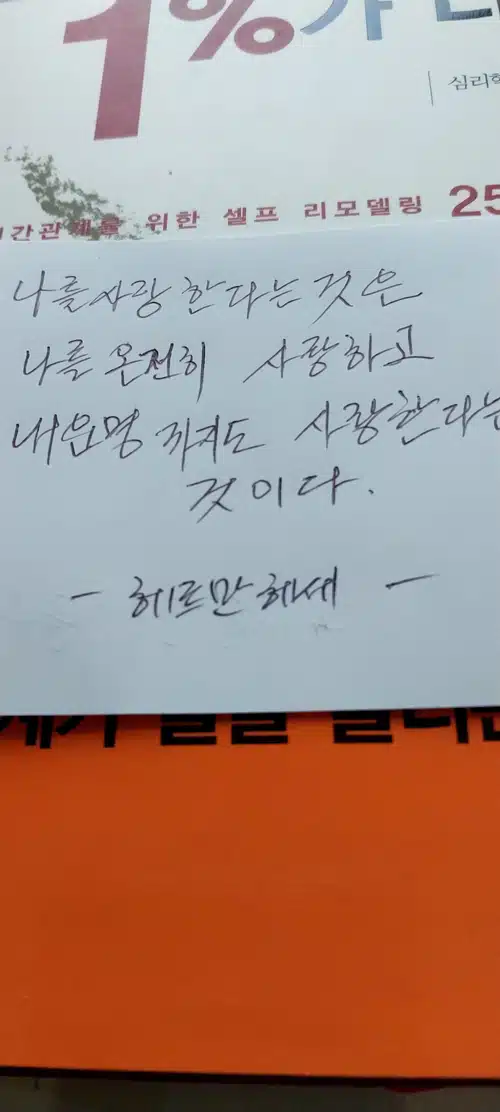 1%가
심리학
인간관계를 위한 셀프 리모델링 25
나를 사랑 한다는 것은
나를 온전히 사랑하고
내운명 까지도 사랑한다는
것이다.
- 헤르만 헤세 -